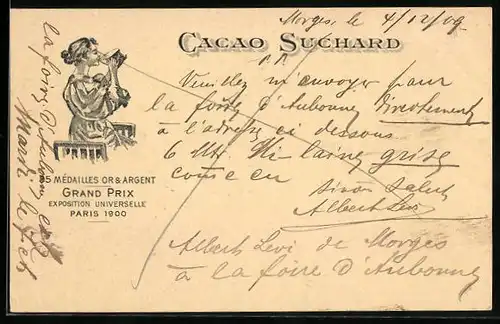 Morges, le 4/12/09
CACAO SUCHARD
Veuillez m'envoyer pour
la foire d'Aubonne
à l'adresse ci dessous
6 Mtr. Mi laine grise
comme
Albert Levi
Albert Levi de Morges
à la foire d'Aubonne
35 MÉDAILLES OR & ARGENT
GRAND PRIX
EXPOSITION UNIVERSELLE
PARIS 1900
la foire d'Aubonne
Mardi le